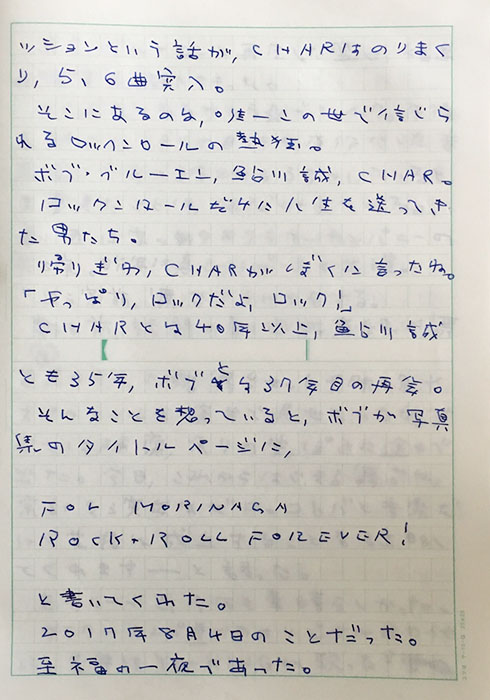 ッションという話が，CHARはのりまく
り，5，6曲突入。
そこにあるのは，唯一この世で信じら
れるロックンロールの熱狂。
ボブ・ブルーエン，鮎川誠，CHAR。
ロックンロールだけに人生を送ってき
た男たち。
帰りぎわ，CHARがぼくに言ったね。
「やっぱり，ロックだよ，ロック！」
CHARとは40年以上，鮎川誠
とも35年，ボブとも37年目の再会。
そんなことを想っていると，ボブが写真
集のタイトルページに，
FOR MORINAGA
ROCK＋ROLL FOREVER！
と書いてくれた。
2017年8月4日のことだった。
至福の一夜であった。